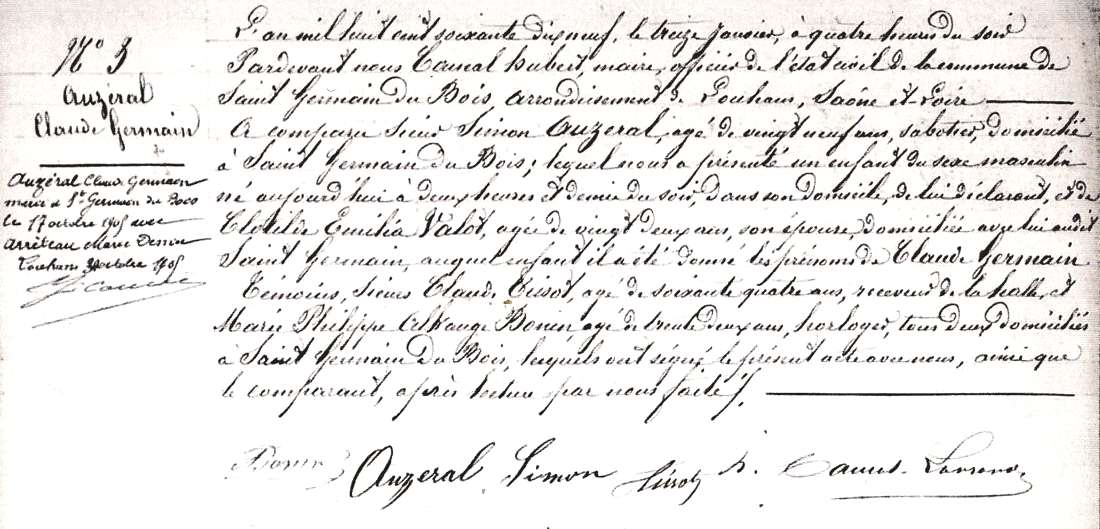 N° 3
Auzéral
Claude Germain
Auzéral Claude Germain
marié à St Germain du Bois
le 17 octobre 1905 avec
Marie
Louhans octobre 1905
L'an mil huit cent soixante dix neuf, le treize janvier, à quatre heures du soir
Pardevant nous Hubert, maire, officier de l'état civil de la commune de
Saint Germain du Bois, arrondissement de Louhans, Saône et-Loire
A comparu sieur Simon Auzeral, agé de vingt neuf ans, sabotier, domicilié
à Saint Germain du Bois; lequel nous a présenté un enfant du sexe masculin
né aujourd'hui à deux heures et demie du soir, dans son domicile, de lui déclarant, et de
Clotilde Emilia Valot, agée de vingt deux ans, son épouse, domiciliée avec lui audit
Saint Germain, auquel enfant il a été donné les prénoms de Claude Germain
Témoins, sieurs Claude Tissot, agé de soixante quatre ans, receveur de la halle, et
Marie Philippe Bonin agé de trente deux ans, horloger, tous deux domiciliés
à Saint Germain du Bois, lesquels ont signé le présent acte avec nous, ainsi que
le comparant, après lecture par nous faite.
Bonin Auzeral Simon Tissot h.